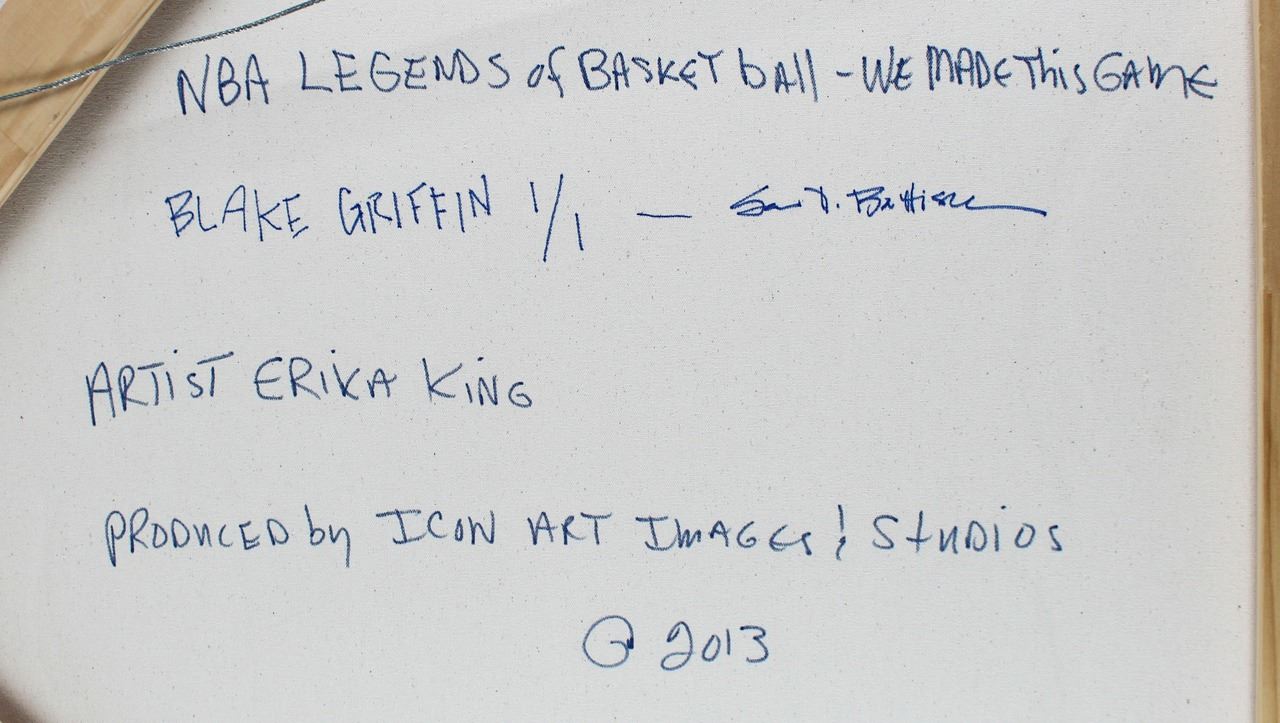 NBA LEGENDS of BASKETball - WE MADE This GAME
BLAKE GRIFFIN 1/1 —
ARTiST ERiKA KiNG
PRODUCED by ICON ART IMAGES & StuDiOS
© 2013